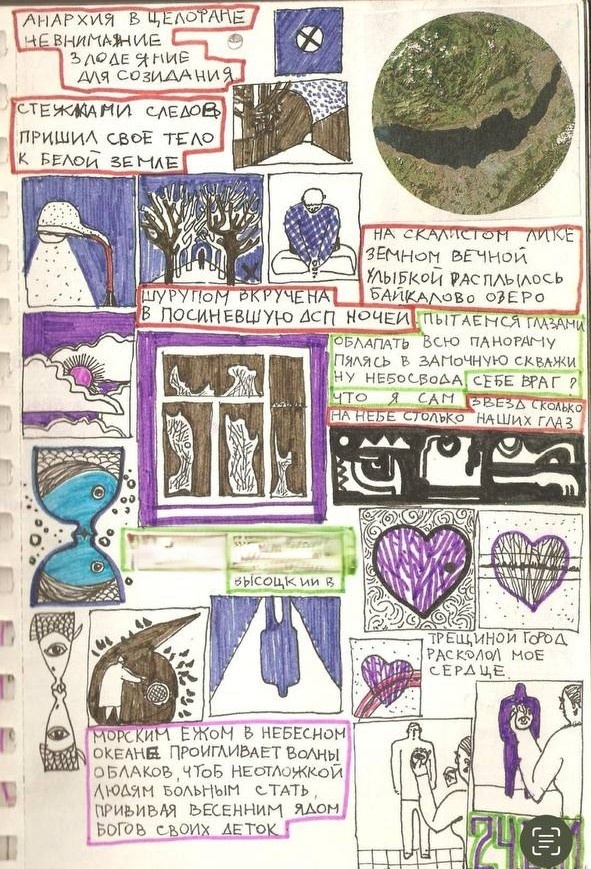 АНАРХИЯ В ЦЕЛОФАНЕ
НЕВНИМАНИЕ
ЗЛОДЕЯНИЕ
ДЛЯ СОЗИДАНИЯ
СТЕЖКАМИ СЛЕДОВ
ПРИШИЛ СВОЕ ТЕЛО
К БЕЛОЙ ЗЕМЛЕ
НА СКАЛИСТОМ ЛИКЕ
ЗЕМНОМ ВЕЧНОЙ
УЛЫБКОЙ РАСПЛЫЛОСЬ
БАЙКАЛОВО ОЗЕРО
ШУРУПОМ ВКРУЧЕНА
В ПОСИНЕВШУЮ ДСП НОЧЕЙ
ПЫТАЕМСЯ ГЛАЗАМИ
ОБЛАПАТЬ ВСЮ ПАНОРАМУ
ПЯЛЯСЬ В ЗАМОЧНУЮ СКВАЖИ
НУ НЕБОСВОДА СЕБЕ ВРАГ?
ЧТО Я САМ ЗВЕЗД СКОЛЬКО
НА НЕБЕ СТОЛЬКО НАШИХ ГЛАЗ
ВЫСОЦКИЙ В
ТРЕЩИНОЙ ГОРОД
РАСКОЛОЛ МОЕ
СЕРДЦЕ.
МОРСКИМ ЕЖОМ В НЕБЕСНОМ
ОКЕАНЕ ПРОИГЛИВАЕТ ВОЛНЫ
ОБЛАКОВ, ЧТОБ НЕОТЛОЖКОЙ
ЛЮДЯМ БОЛЬНЫМ СТАТЬ,
ПРИВИВАЯ ВЕСЕННИМ ЯДОМ
БОГОВ СВОИХ ДЕТОК